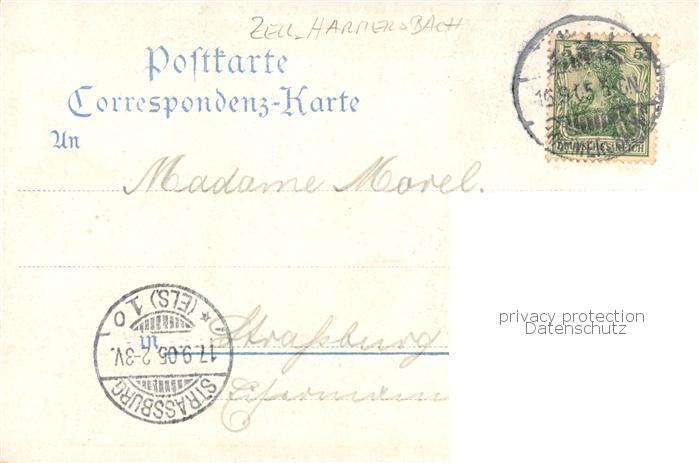 ZELL-HARMERSBACH
Postkarte
Correspondenz-Karte
An
Madame Morel.
5 5
DEUTSCHES REICH
privacy protection
Datenschutz
in Straßburg
STRASSBURG
17.9.05.2-3V.
* (ELS.) 1 o